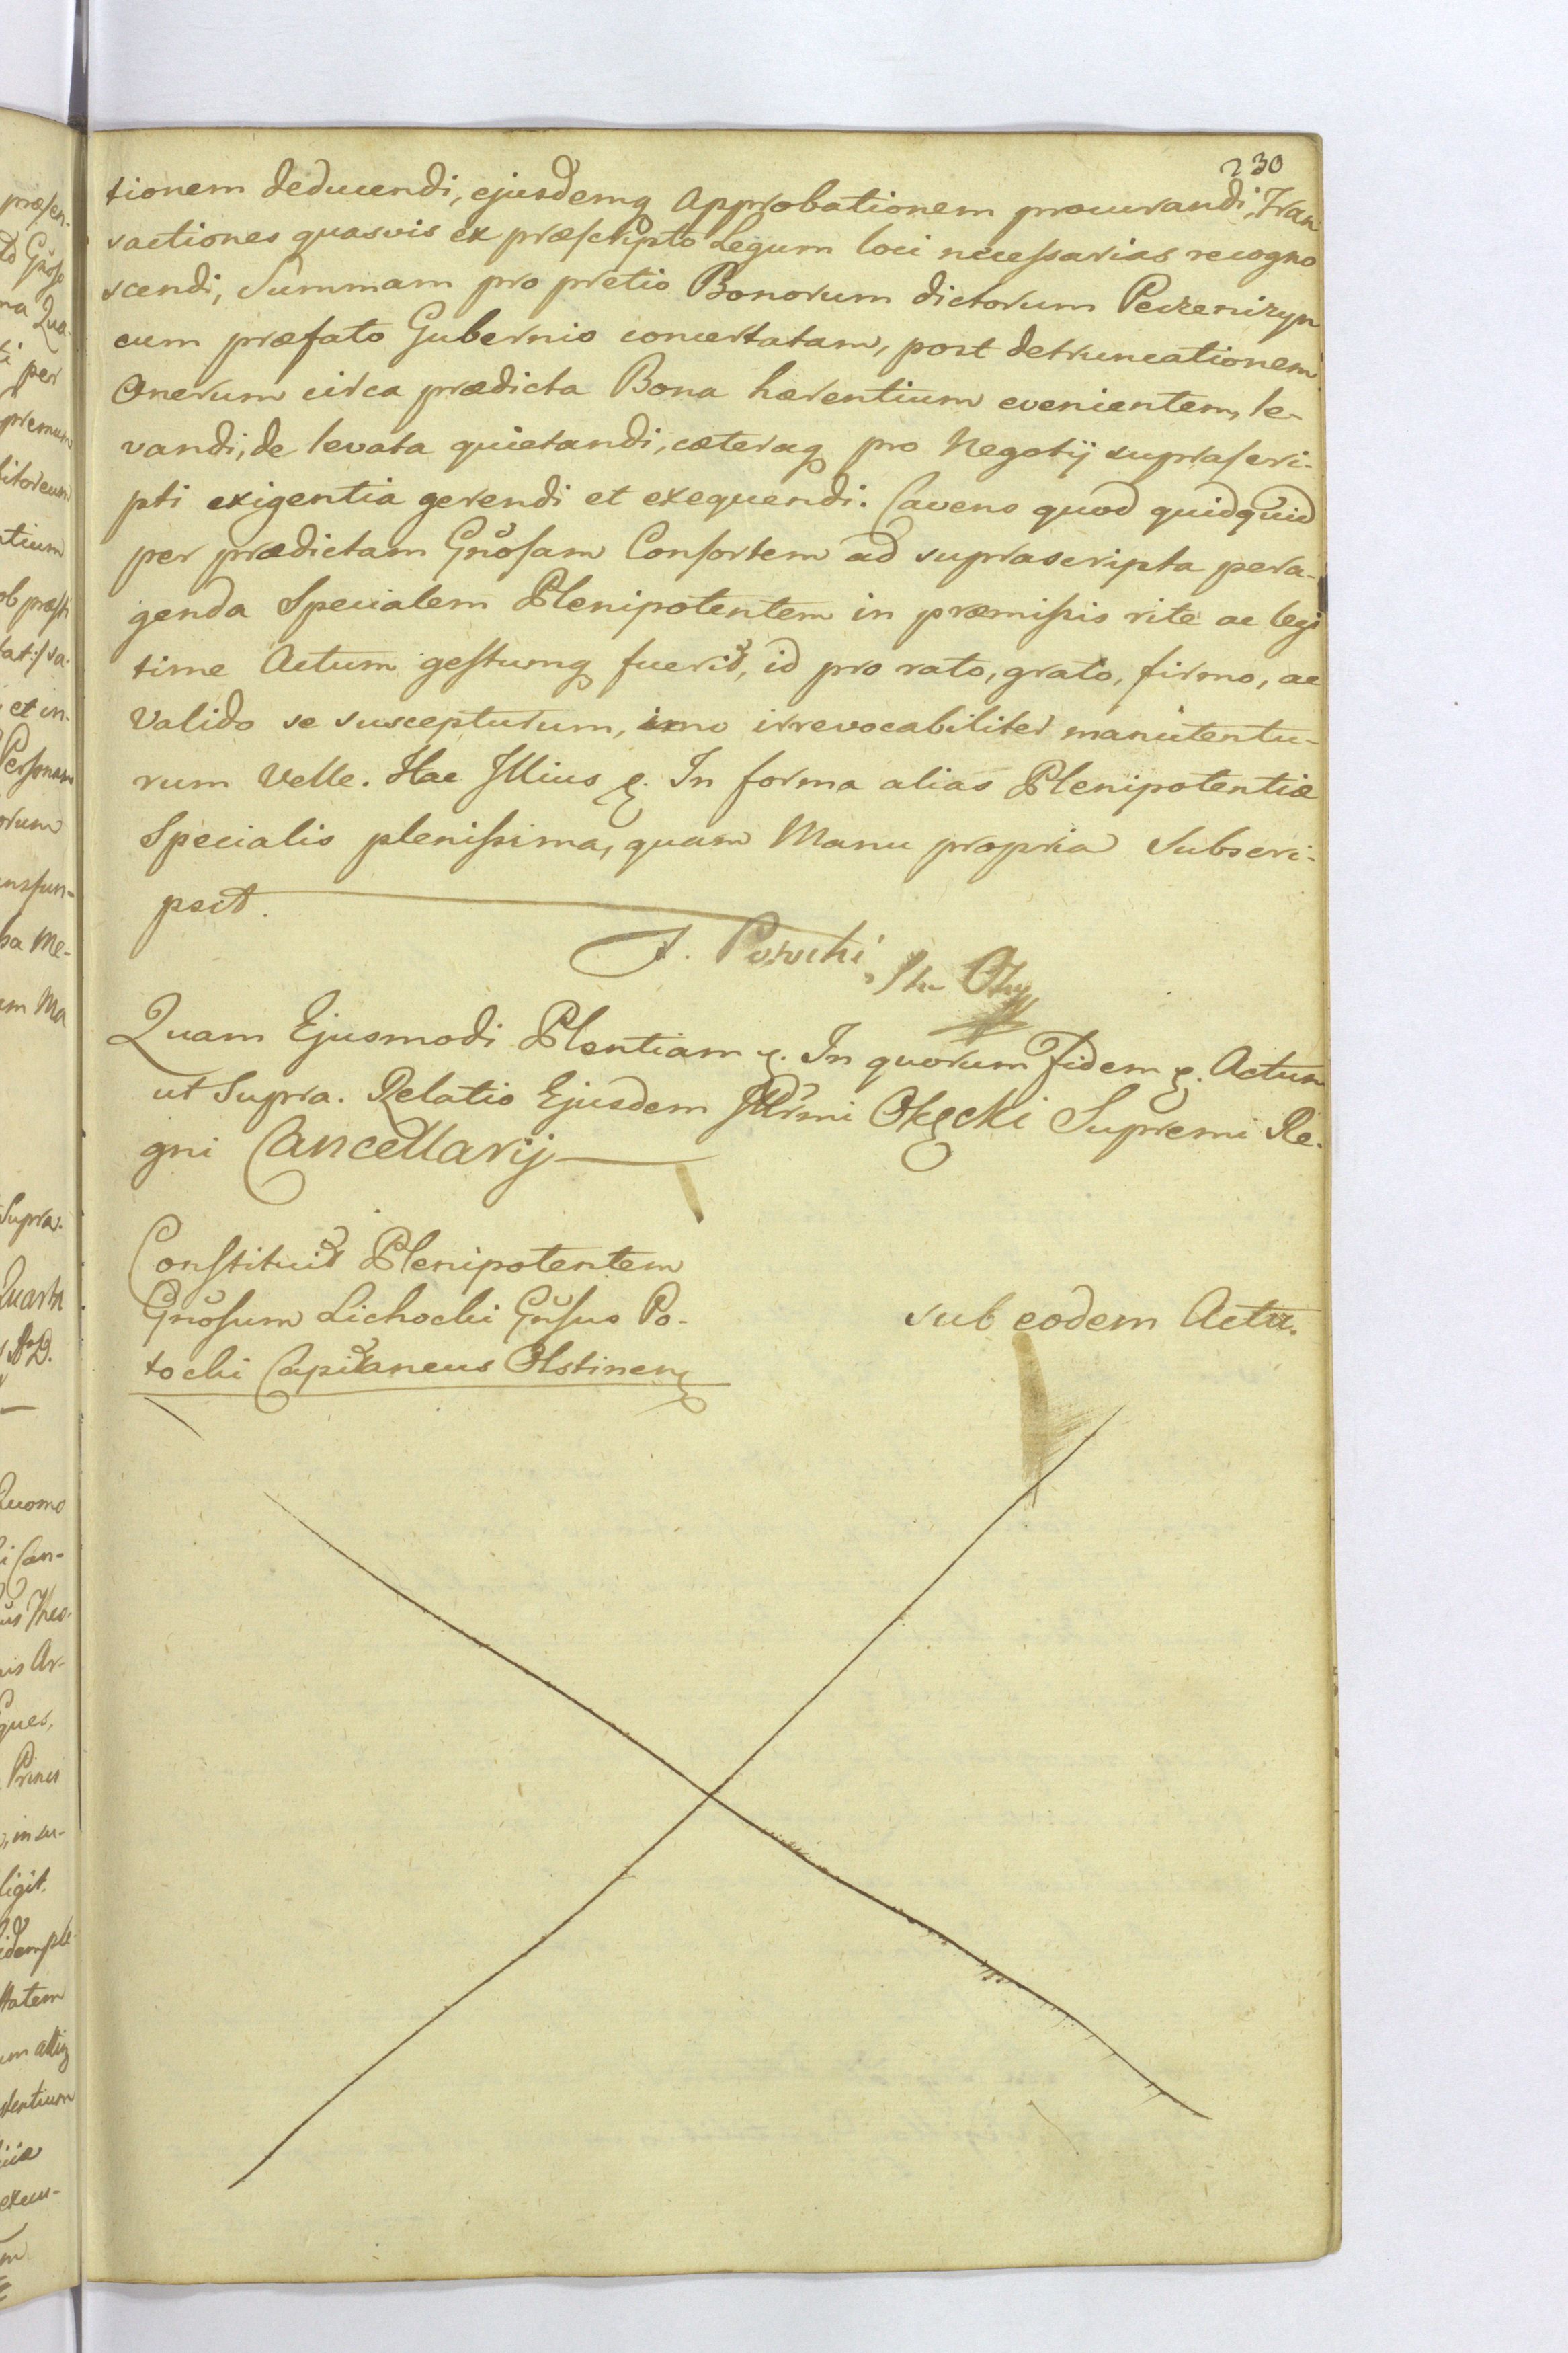 230
tionem deducendi, ejusdemq Approbationem procurandi, Tran
sactiones quasvis ex præscripto Legum loci necessarias recogno
scendi, Summam pro pretio Bonorum dictorum Peczenizyn
cum præfato Gubernio concertatam, post detruncationem
Onerum circa prædicta Bona hærentium evenientem, le-
vandi, de levata quietandi, cæteraq pro Negotij suprascri-
pti exigentia gerendi et exequendi. Cavens quod quidquid
per prædictam Gnosam Consortem ad suprascripta pera-
genda Specialem Plenipotentem in præmissis rite ac legi
time Actum gestumq fuerit, id pro rato, grato, firmo, ac
Valido se suscepturum, imo irrevocabiliter manutentu-
rum velle. Hac Illius ę. In forma alias Plenipotentiæ
Specialis plenissima, quam Manu propria Subscri-
psit.
Quam Ejusmodi Plentiam ę. In quorum Fidem ę. Actum
ut Supra. Relatio Ejusdem Illrmi Okęcki Supremi Re-
gni Cancellarij
Constituit Plenipotentem
Gnosum Lichocki Gnsus Po-
tocki Capitaneus Olstinen
sub eodem Actu.